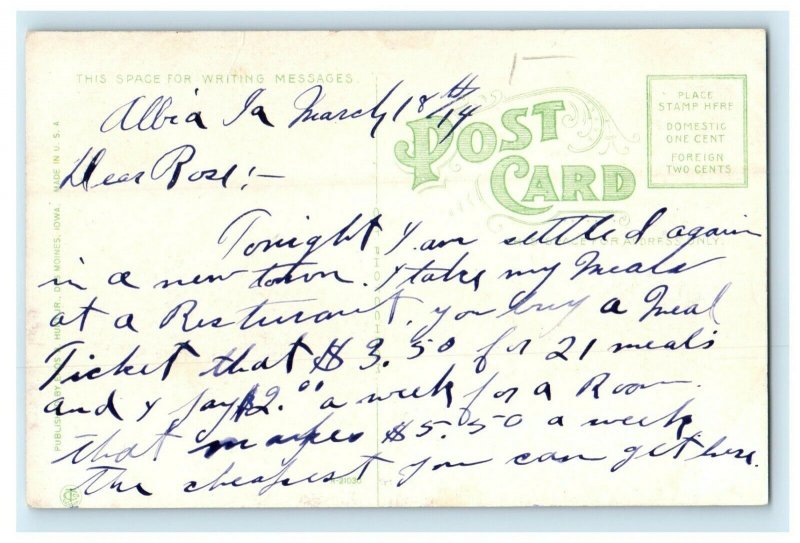 THIS SPACE FOR WRITING MESSAGES.
Albia Ia March 18th/14
POST CARD
PLACE
STAMP HERE
DOMESTIC
ONE CENT
FOREIGN
TWO CENTS
Dear Rose!-
Tonight I am settled again
FOR ADDRESS ONLY.
in a new town. I take my Meals
at a Resturant, you buy a Meal
Ticket that $3.50 for 21 meals
and I pay $2.00 a week for a Room.
that makes $5.50 a week
the cheapest you can get here.
MADE IN U.S.A.
DES MOINES, IOWA.